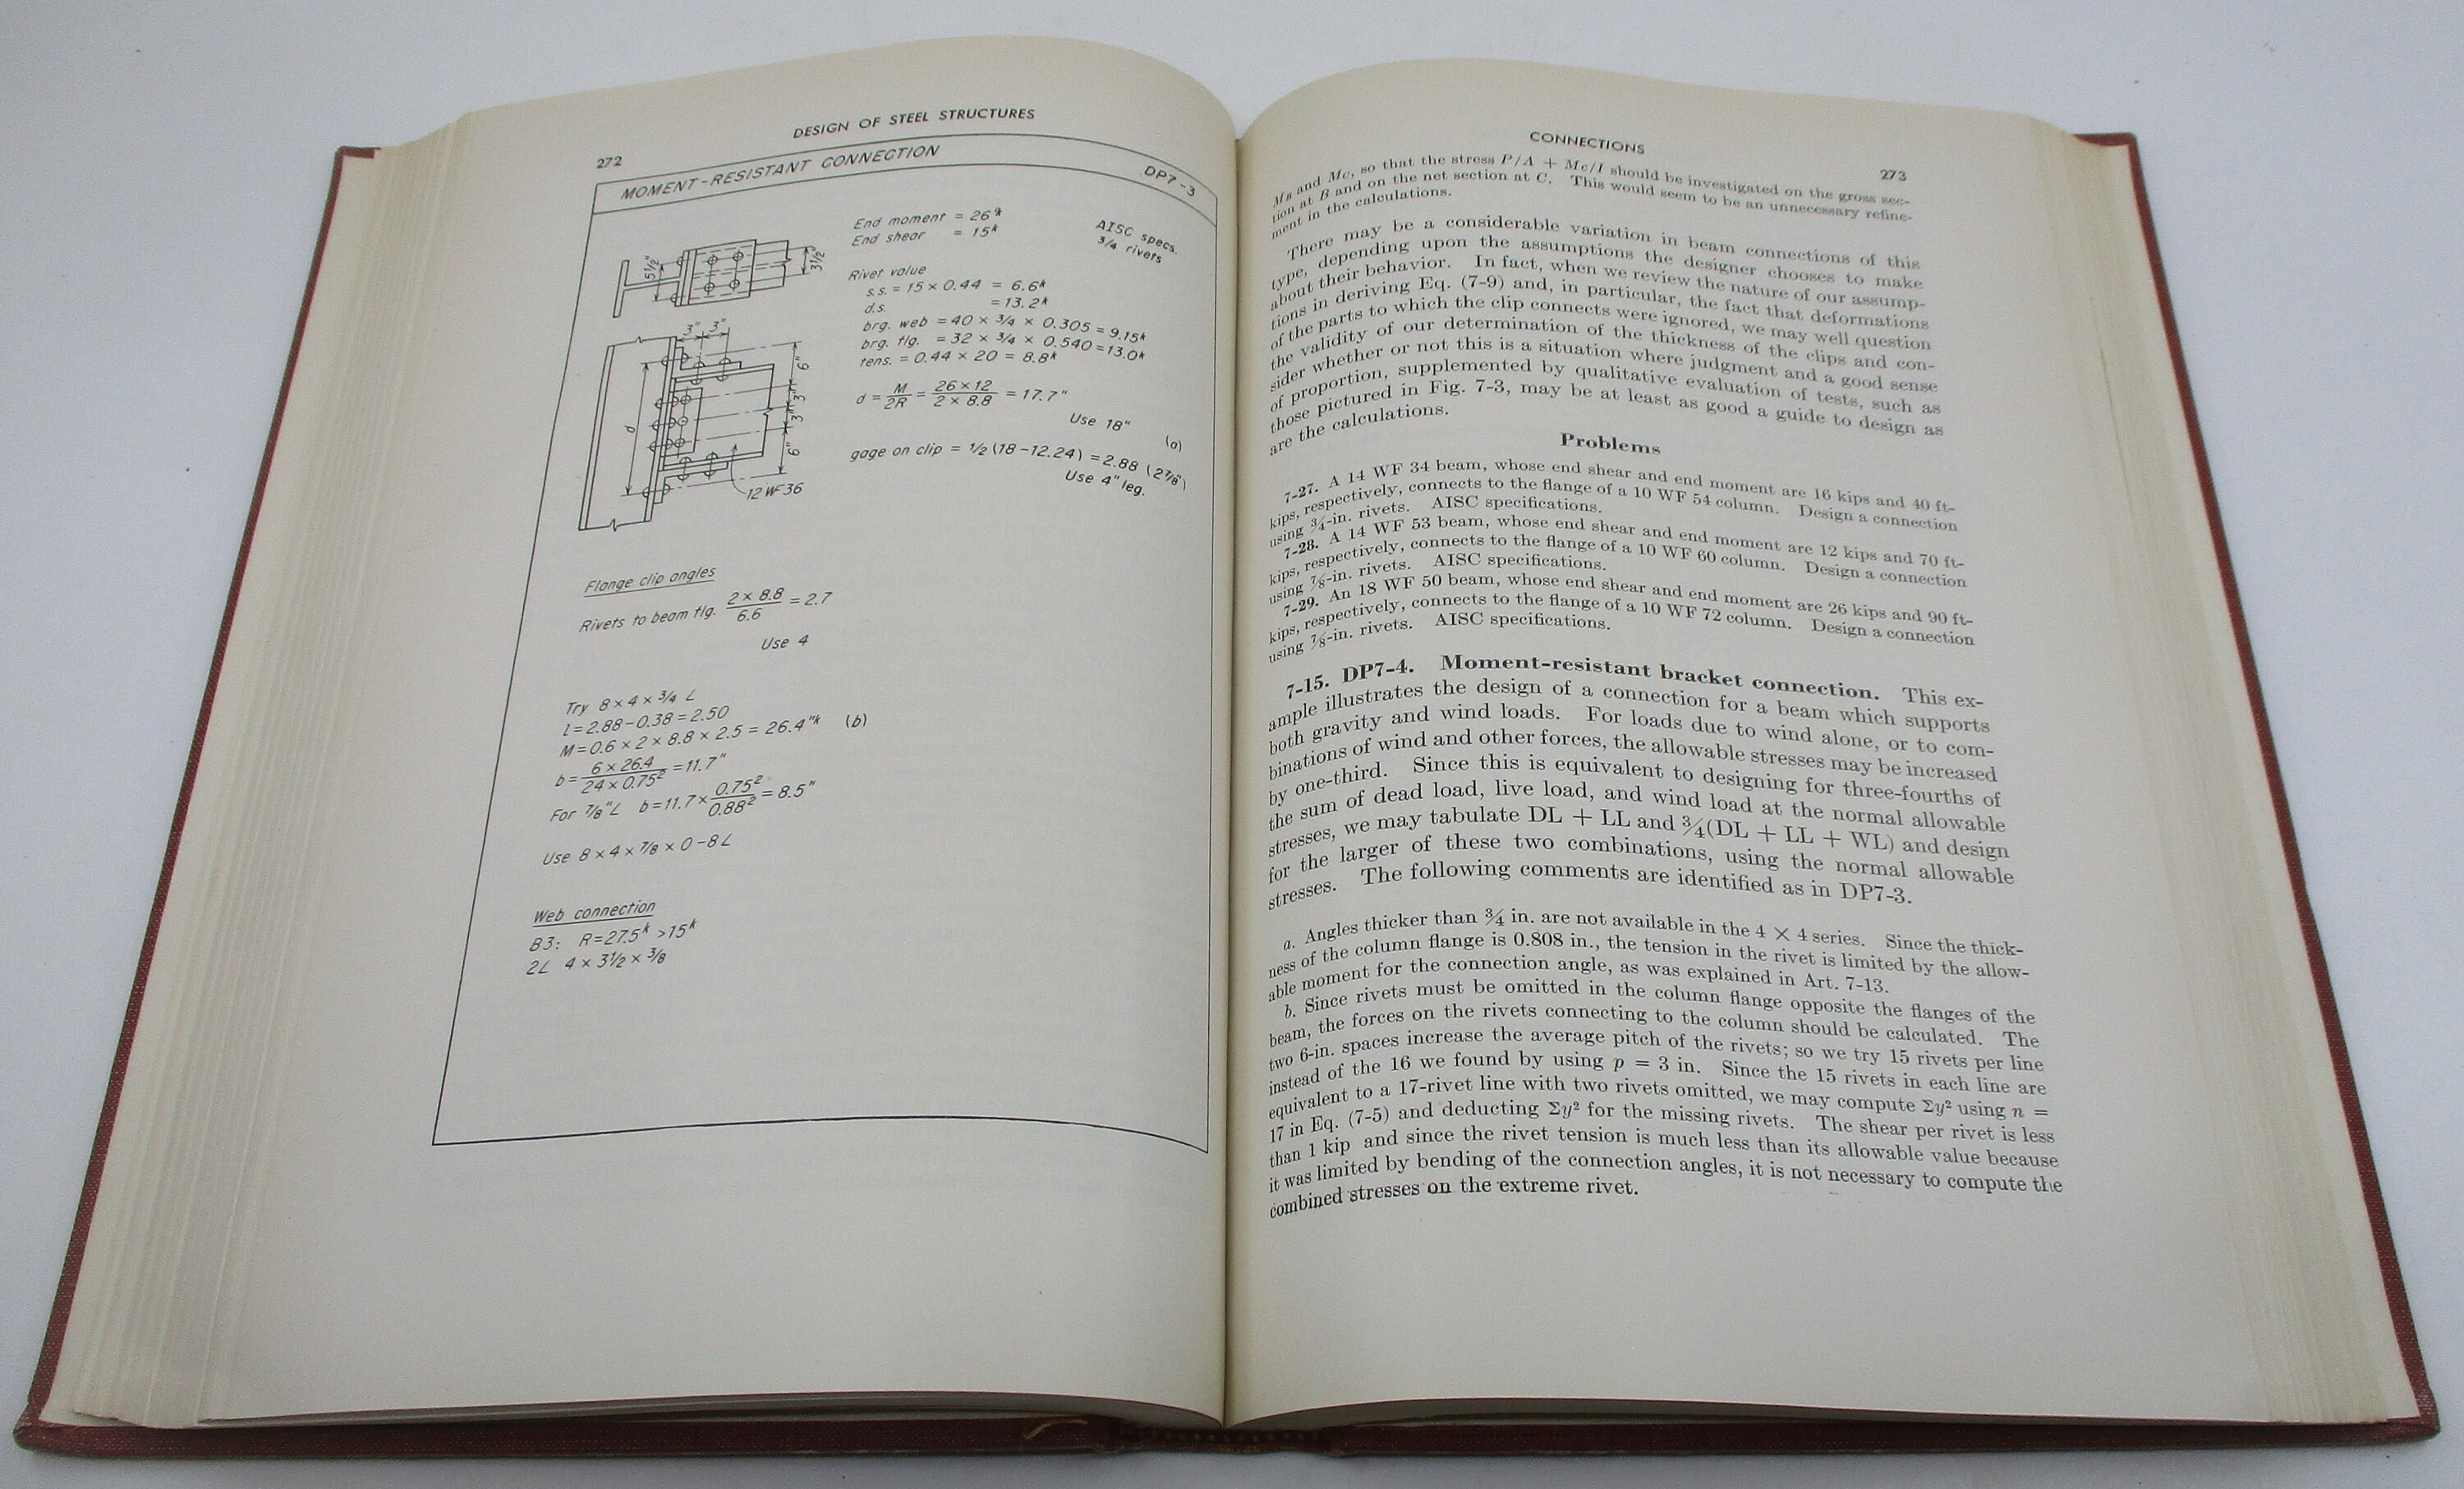 272
DESIGN OF STEEL STRUCTURES
MOMENT-RESISTANT CONNECTION
DP7-3
End moment = 26'k
End shear = 15k
AISC specs.
3/4 rivets
Rivet value
s.s. = 15 × 0.44 = 6.6k
d.s. = 13.2k
brg. web = 40 × 3/4 × 0.305 = 9.15k
brg. flg. = 32 × 3/4 × 0.540 = 13.0k
tens. = 0.44 × 20 = 8.8k
d = M/2R = 26 × 12/2 × 8.8 = 17.7"
Use 18" (a)
gage on clip = 1/2 (18 - 12.24) = 2.88 (2 7/8")
Use 4" leg.
5 1/2"
3 1/2"
3" 3"
6"
3"
3"
6"
d
12 WF 36
Flange clip angles
Rivets to beam flg. 2 × 8.8/6.6 = 2.7
Use 4
Try 8 × 4 × 3/4 ∠
l = 2.88 - 0.38 = 2.50
M = 0.6 × 2 × 8.8 × 2.5 = 26.4"k (b)
b = 6 × 26.4/24 × 0.75² = 11.7"
For 7/8" ∠ b = 11.7 × 0.75²/0.88² = 8.5"
Use 8 × 4 × 7/8 × 0-8 ∠
Web connection
B3: R = 27.5k > 15k
2∠ 4 × 3 1/2 × 3/8
CONNECTIONS
273
MB and MC, so that the stress P/A + Mc/I should be investigated on the gross sec-
tion at B and on the net section at C. This would seem to be an unnecessary refine-
ment in the calculations.
There may be a considerable variation in beam connections of this
type, depending upon the assumptions the designer chooses to make
about their behavior. In fact, when we review the nature of our assump-
tions in deriving Eq. (7-9) and, in particular, the fact that deformations
of the parts to which the clip connects were ignored, we may well question
the validity of our determination of the thickness of the clips and con-
sider whether or not this is a situation where judgment and a good sense
of proportion, supplemented by qualitative evaluation of tests, such as
those pictured in Fig. 7-3, may be at least as good a guide to design as
are the calculations.
Problems
7-27. A 14 WF 34 beam, whose end shear and end moment are 16 kips and 40 ft-
kips, respectively, connects to the flange of a 10 WF 54 column. Design a connection
using 3/4-in. rivets. AISC specifications.
7-28. A 14 WF 53 beam, whose end shear and end moment are 12 kips and 70 ft-
kips, respectively, connects to the flange of a 10 WF 60 column. Design a connection
using 7/8-in. rivets. AISC specifications.
7-29. An 18 WF 50 beam, whose end shear and end moment are 26 kips and 90 ft-
kips, respectively, connects to the flange of a 10 WF 72 column. Design a connection
using 7/8-in. rivets. AISC specifications.
7-15. DP7-4. Moment-resistant bracket connection. This ex-
ample illustrates the design of a connection for a beam which supports
both gravity and wind loads. For loads due to wind alone, or to com-
binations of wind and other forces, the allowable stresses may be increased
by one-third. Since this is equivalent to designing for three-fourths of
the sum of dead load, live load, and wind load at the normal allowable
stresses, we may tabulate DL + LL and 3/4(DL + LL + WL) and design
for the larger of these two combinations, using the normal allowable
stresses. The following comments are identified as in DP7-3.
a. Angles thicker than 3/4 in. are not available in the 4 × 4 series. Since the thick-
ness of the column flange is 0.808 in., the tension in the rivet is limited by the allow-
able moment for the connection angle, as was explained in Art. 7-13.
b. Since rivets must be omitted in the column flange opposite the flanges of the
beam, the forces on the rivets connecting to the column should be calculated. The
two 6-in. spaces increase the average pitch of the rivets; so we try 15 rivets per line
instead of the 16 we found by using p = 3 in. Since the 15 rivets in each line are
equivalent to a 17-rivet line with two rivets omitted, we may compute Σy² using n =
17 in Eq. (7-5) and deducting Σy² for the missing rivets. The shear per rivet is less
than 1 kip and since the rivet tension is much less than its allowable value because
it was limited by bending of the connection angles, it is not necessary to compute the
combined stresses on the extreme rivet.